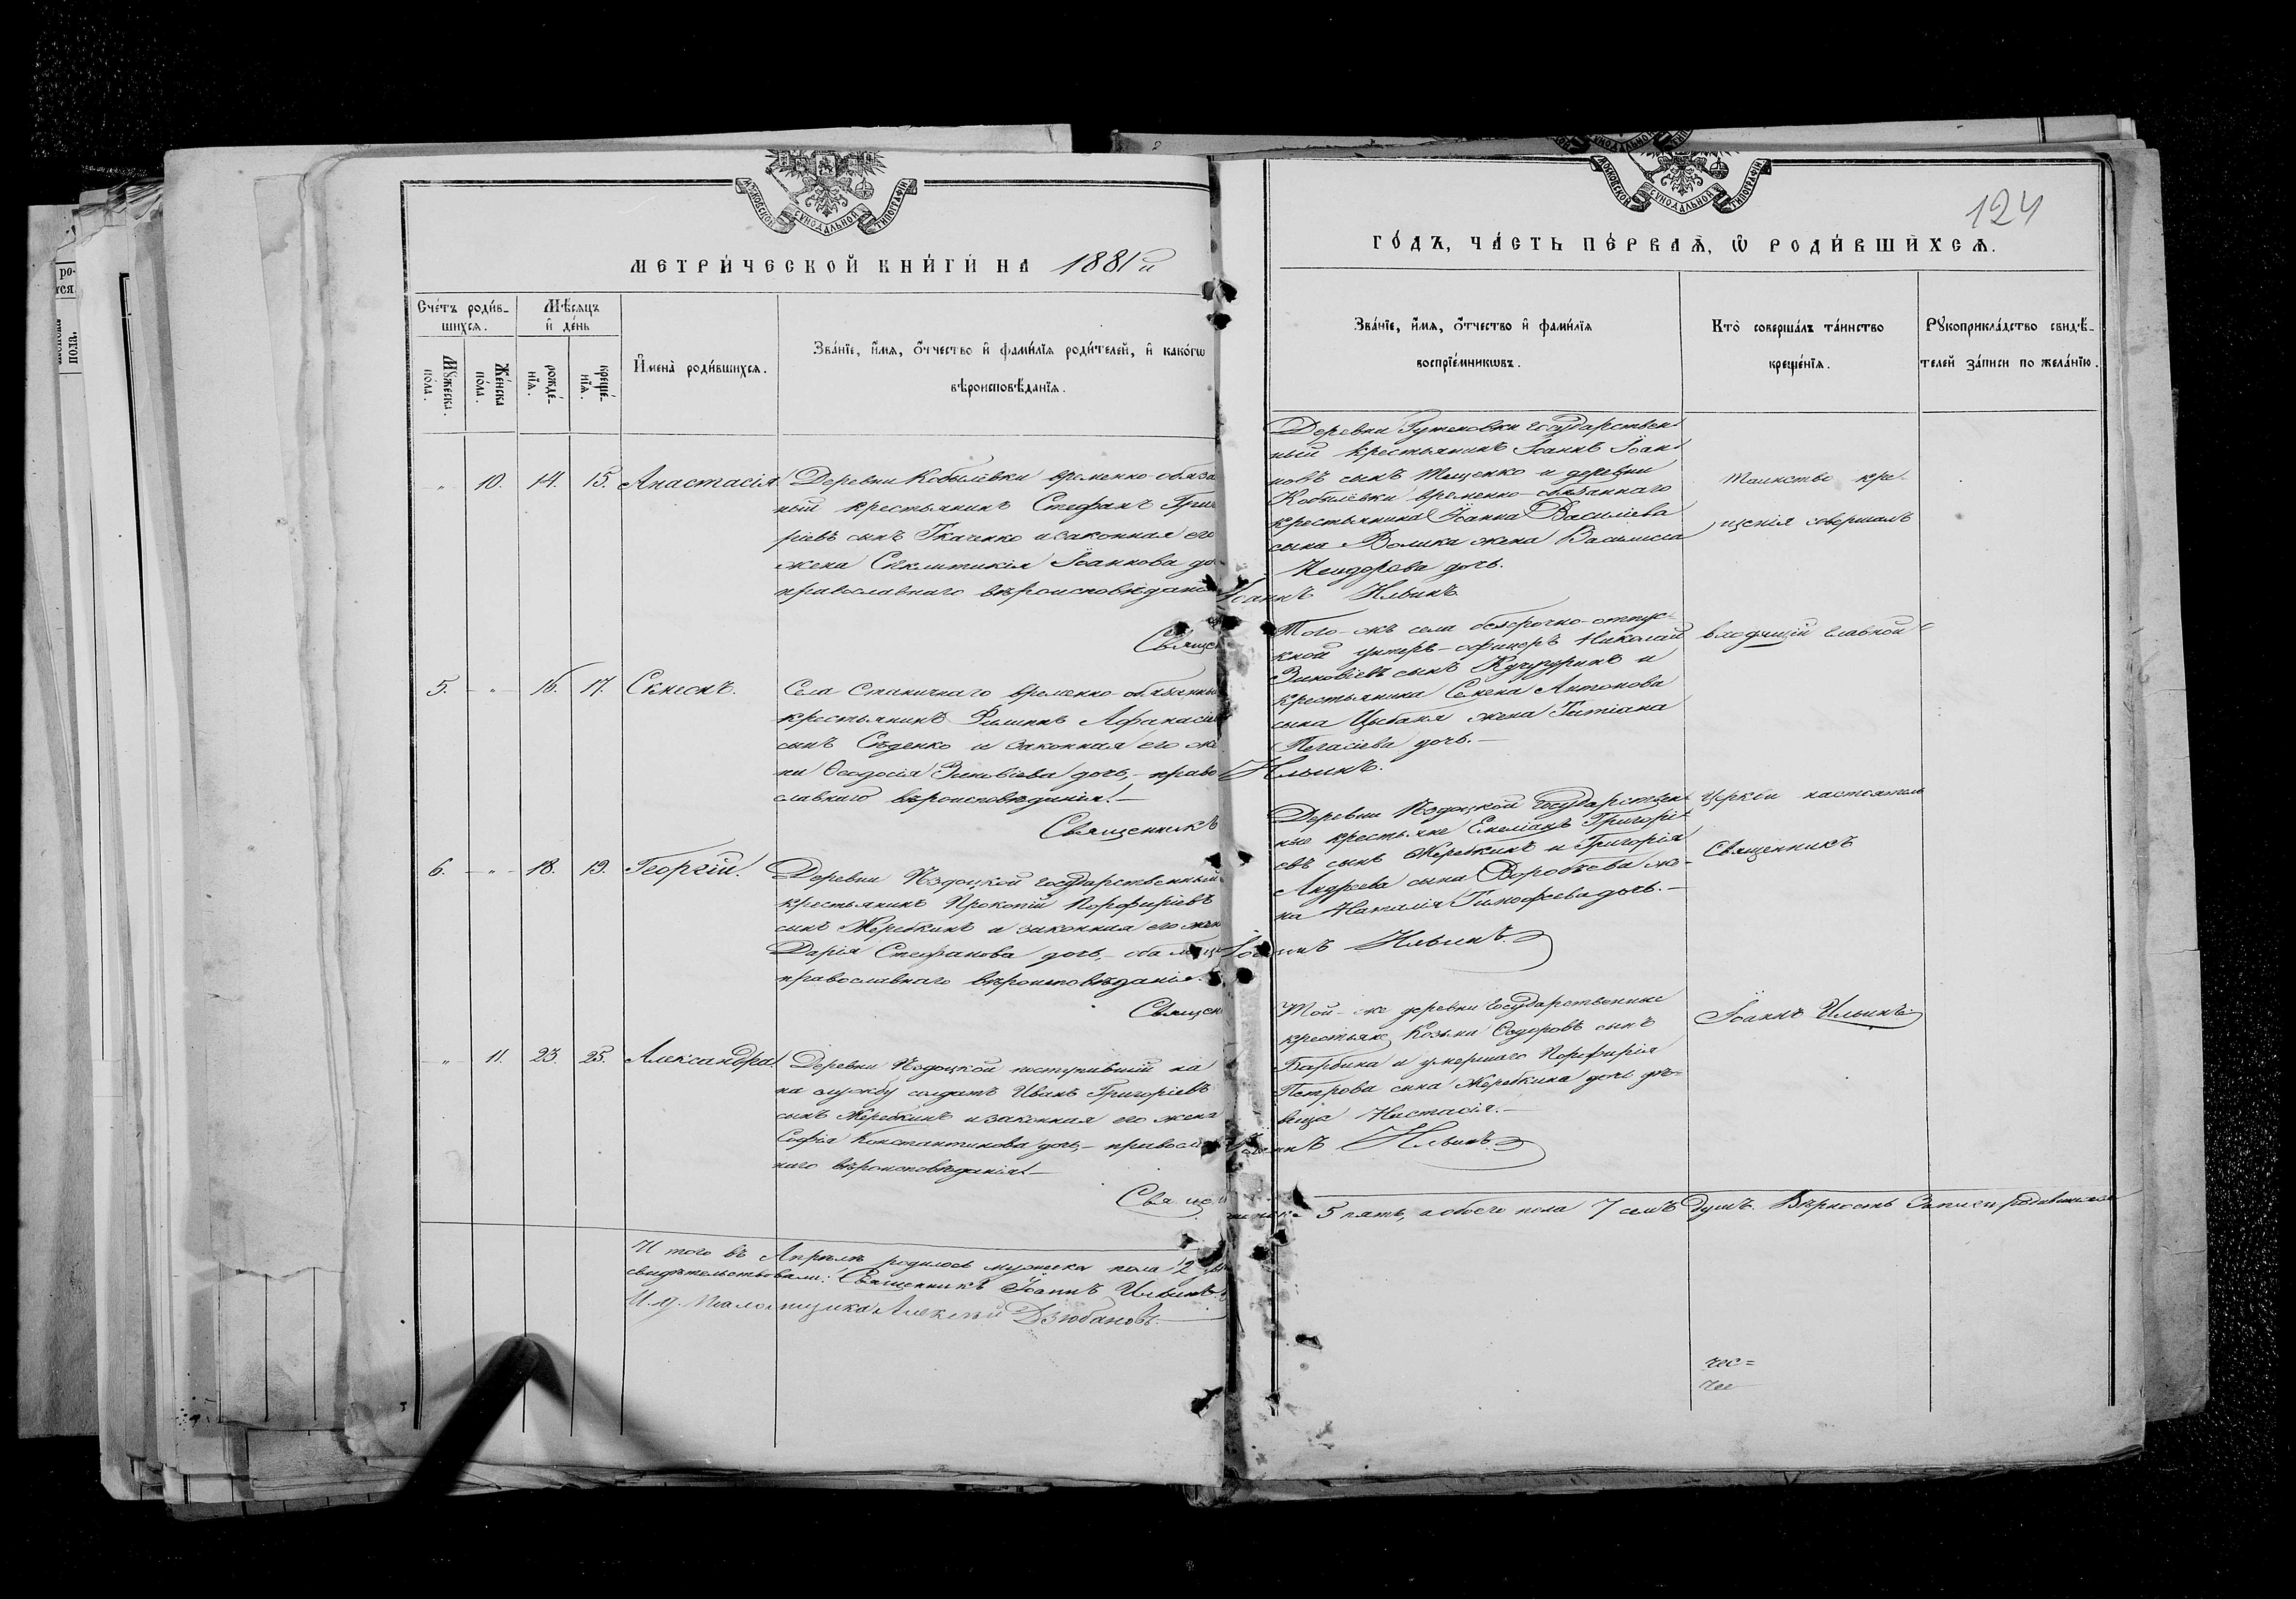 МОСКОВСКОЙ СѴНОДАЛЬНОЙ ТИПОГРАФІИ
МЕТРИ́ЧЕСКОЙ КНИ́ГИ НА 1881й
Сче́тъ роди́в-
шихся.
Мѣ́сяцъ
и҆ де́нь
Мꙋ́жеска
по́ла.
Же́нска
по́ла.
рожде́-
нїѧ.
креще́-
нїѧ.
И҆мена̀ роди́вшихся.
Зва́нїе, и҆́мѧ, ѻ҆́тчество и҆ фами́лїѧ роди́телей, и҆ како́гѡ
вѣроисповѣ́данїѧ.
" 10. 14. 15. Анастасія. Деревни Кобылевки временно-обяза
ный крестьянинъ Стефанъ Григо
ріевъ сынъ Ткаченко и законная его
жена Сѵклитикія Іоаннова до
православнаго вѣроисповѣданія
Свящ
5. " 16. 17. Сѵмеонъ. Села Станичнаго временно-обязанный
крестьянинъ Филиппъ Афанасіев
сынъ Сѣденко и законная его же
на Ѳеодосія Зиновіева дочь, право
славнаго вѣроисповѣданія.
Священникъ
6. " 18. 19. Георгій. Деревни государственный
крестьянинъ Прокопій Порфиріевъ
сынъ Жеребкинъ и законная его жена
Дарія Стефанова дочь, оба
православнаго вѣроисповѣданія.
Священ
" 11. 23. 25. Александра. Деревни поступившій на
на службу солдатъ Иванъ Григоріевъ
сынъ Жеребкинъ и законная его жена
Софія Константинова дочь, правосла
наго вѣроисповѣданія
Свящ
И того въ Апрѣлѣ родилось мужеска пола 2
свидѣтельствовали: Священникъ Іоаннъ Ильинъ.
И. д. Псаломщика Алексѣй Дзюбановъ.
МОСКОВСКОЙ СѴНОДАЛЬНОЙ ТИПОГРАФІИ
124
ГО́ДЪ, ЧА́СТЬ ПЕ́РВАѦ, Ѡ҆ РОДИ́ВШИХСѦ.
Зва́нїе, и҆́мѧ, ѻ҆́тчество и҆ фами́лїѧ
воспрїе́мникѡвъ.
Кто̀ соверша́лъ та́инство
креще́нїѧ.
Рꙋкоприкла́дство свидѣ́-
телей за́писи по жела́нїю.
Деревни Гутеновки Государствен
ный крестьянинъ Іоаннъ Іоан
новъ сынъ Тещенко и деревни
Кобылевки временно-обязаннаго
крестьянина Іоанна Василіева
сына Волика жена Василисса
дочь.
Іоаннъ Ильинъ
Таинство кре-
щенія совершалъ
Того-жъ села безсрочно-отпус-
кной унтеръ-офицеръ Николай
Зиновіевъ сынъ и
крестьянина Семена Антонова
сына Цыбаня жена Татіана
дочь.
Ильинъ.
входящій главной
Деревни Государствен
ные крестьяне Емеліанъ Григорі
евъ сынъ Жеребкинъ и Григорія
Андреева сына Воробьева же-
на Наталія Тимофеева дочь.
Іоаннъ Ильинъ.
Церкви настоятель
Священникъ
Той-же деревни Государственные
крестьяне Козьма Ѳедоровъ сынъ
Барбина и умершаго Порфирія
Петрова сына Жеребкина дочь дѣ-
вица Настасія.
Іоаннъ Ильинъ.
Іоаннъ Ильинъ.
женска 5 пять, а обоего пола 7 семь душъ. Вѣрность Записи родившихся